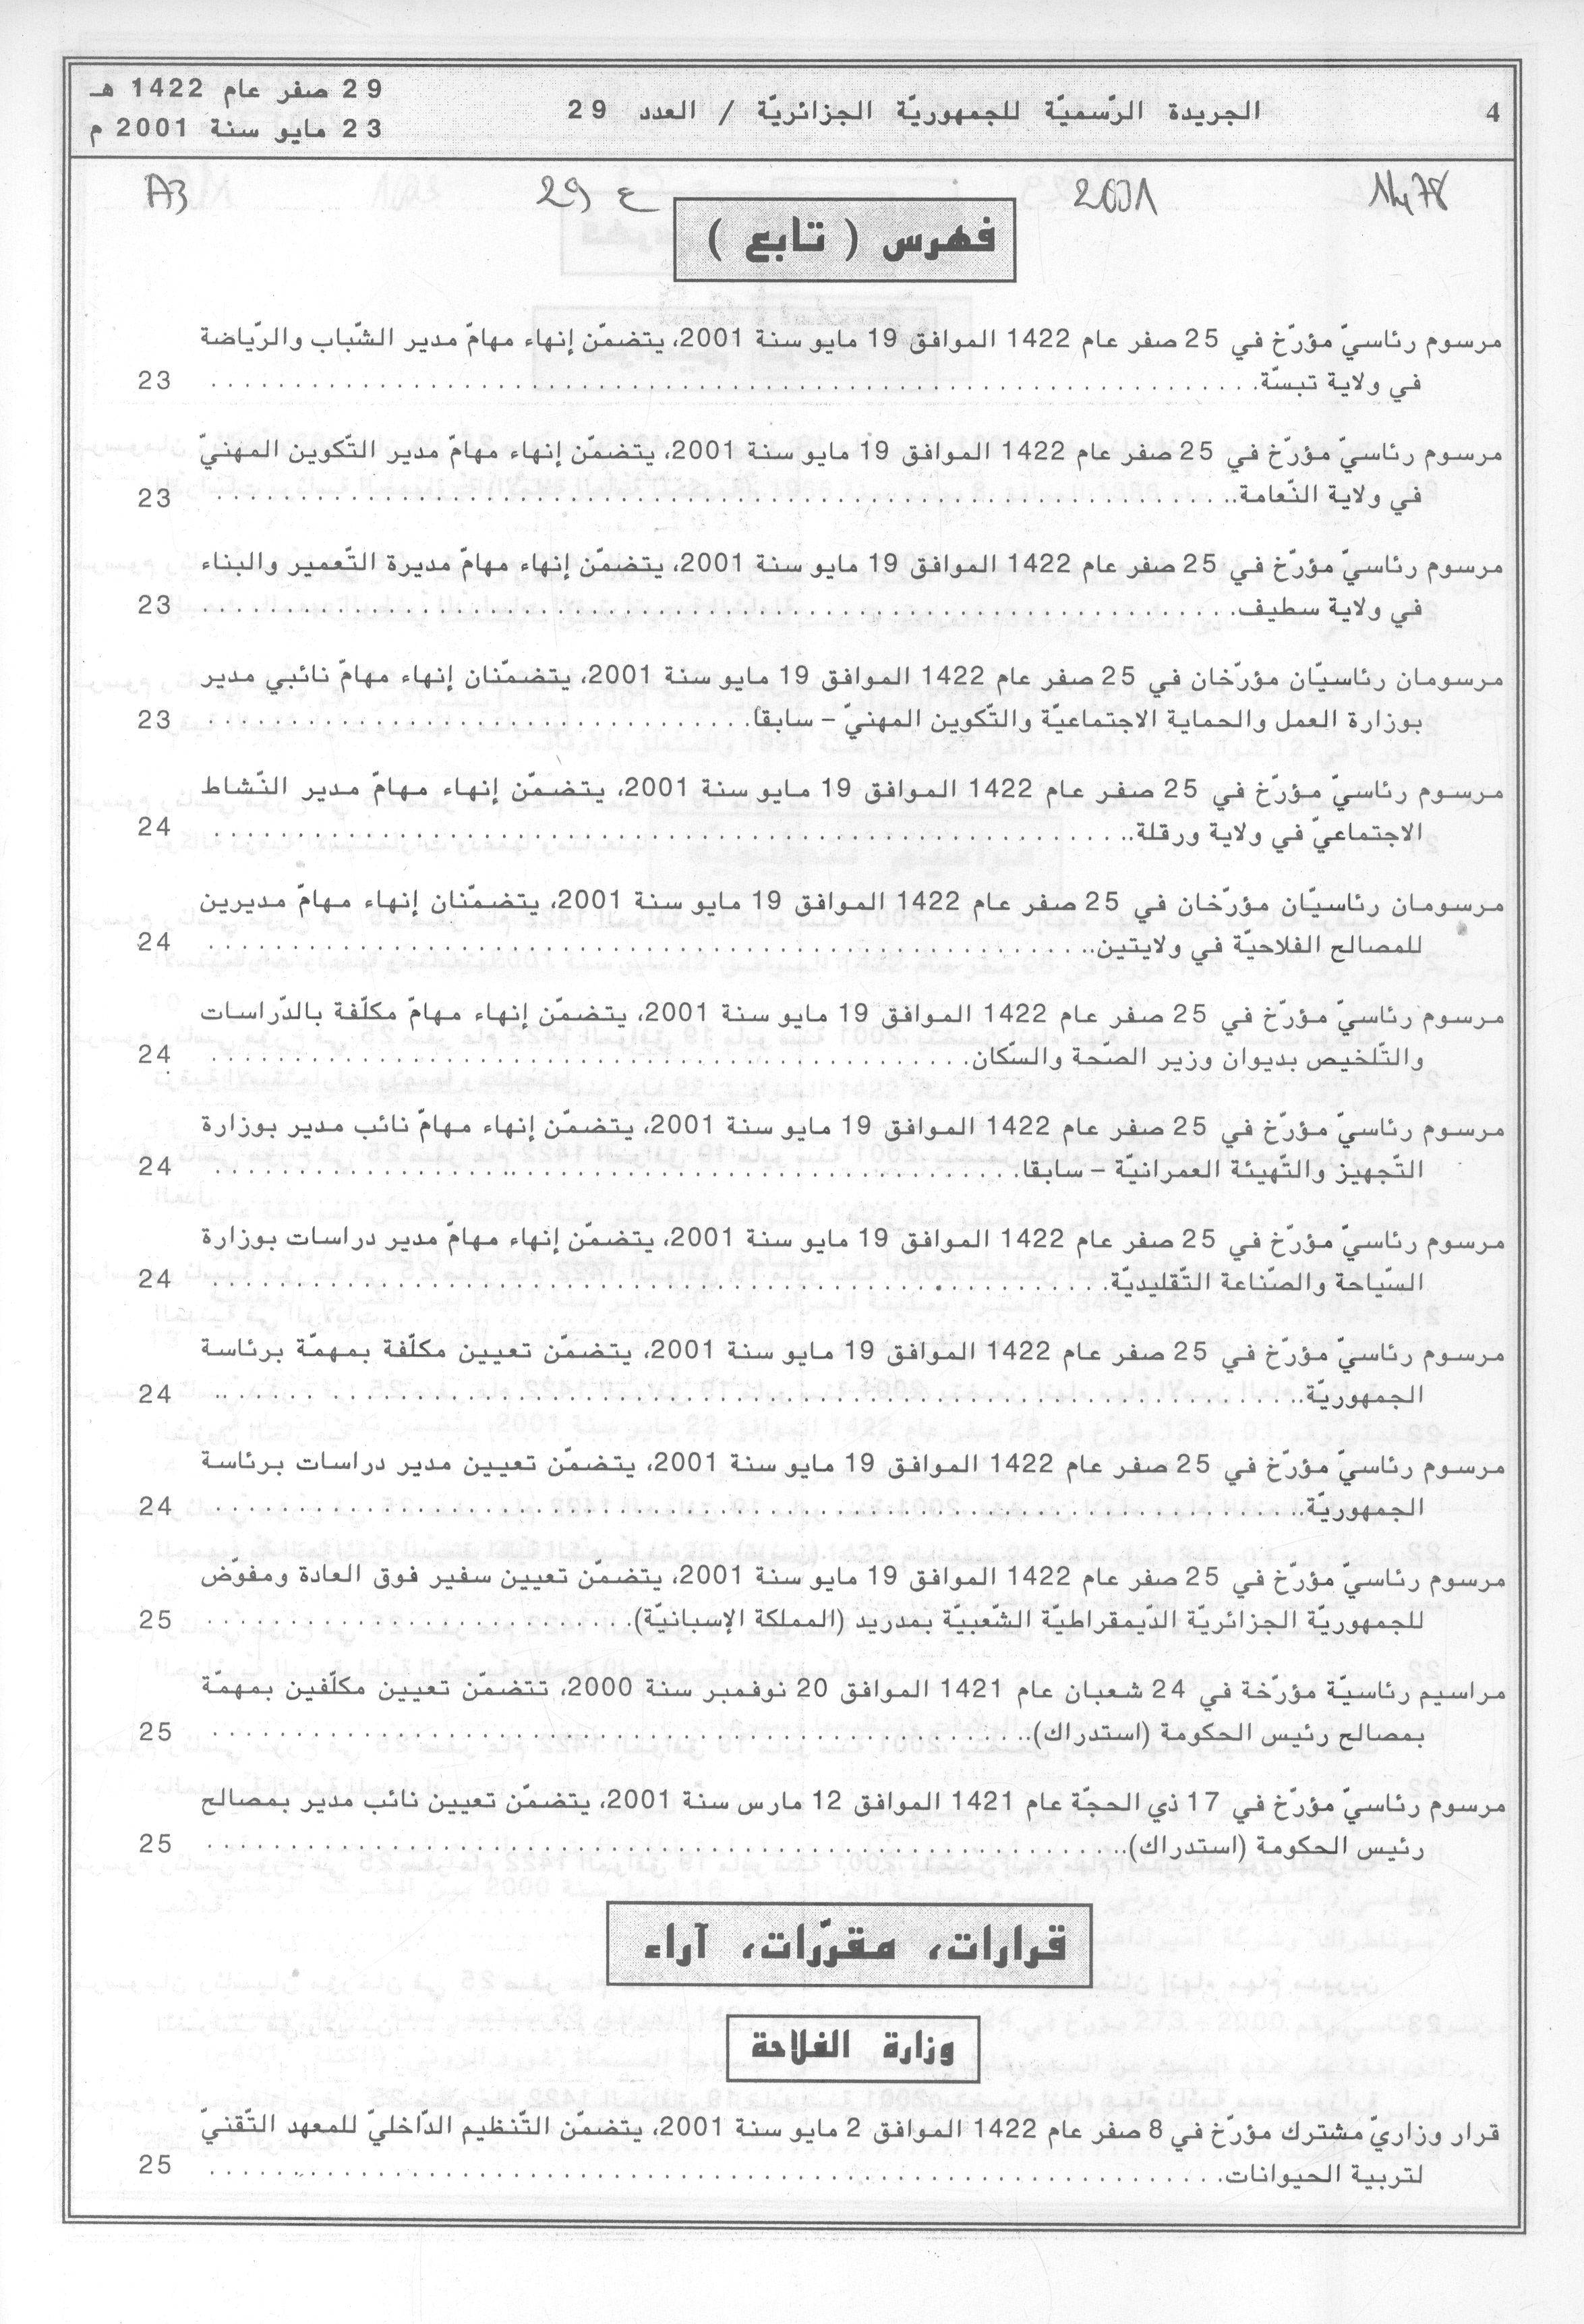 4
الجريدة الرّسميّة للجمهوريّة الجزائريّة / العدد 29
29 صفر عام 1422 هـ
23 مايو سنة 2001 م
1478 2001 ع 29 A3
فهرس ( تابع )
مرسوم رئاسيّ مؤرّخ في 25 صفر عام 1422 الموافق 19 مايو سنة 2001، يتضمّن إنهاء مهامّ مدير الشّباب والرّياضة
في ولاية تبسّة. . . . . . . . . . 23
مرسوم رئاسيّ مؤرّخ في 25 صفر عام 1422 الموافق 19 مايو سنة 2001، يتضمّن إنهاء مهامّ مدير التّكوين المهنيّ
في ولاية النّعامة. . . . . . . . . . 23
مرسوم رئاسيّ مؤرّخ في 25 صفر عام 1422 الموافق 19 مايو سنة 2001، يتضمّن إنهاء مهامّ مديرة التّعمير والبناء
في ولاية سطيف. . . . . . . . . . 23
مرسومان رئاسيّان مؤرّخان في 25 صفر عام 1422 الموافق 19 مايو سنة 2001، يتضمّنان إنهاء مهامّ نائبي مدير
بوزارة العمل والحماية الاجتماعيّة والتّكوين المهنيّ – سابقا. . . . . . . . . . 23
مرسوم رئاسيّ مؤرّخ في 25 صفر عام 1422 الموافق 19 مايو سنة 2001، يتضمّن إنهاء مهامّ مدير النّشاط
الاجتماعيّ في ولاية ورقلة. . . . . . . . . . 24
مرسومان رئاسيّان مؤرّخان في 25 صفر عام 1422 الموافق 19 مايو سنة 2001، يتضمّنان إنهاء مهامّ مديرين
للمصالح الفلاحيّة في ولايتين. . . . . . . . . . 24
مرسوم رئاسيّ مؤرّخ في 25 صفر عام 1422 الموافق 19 مايو سنة 2001، يتضمّن إنهاء مهامّ مكلّفة بالدّراسات
والتّلخيص بديوان وزير الصّحة والسّكان. . . . . . . . . . 24
مرسوم رئاسيّ مؤرّخ في 25 صفر عام 1422 الموافق 19 مايو سنة 2001، يتضمّن إنهاء مهامّ نائب مدير بوزارة
التّجهيز والتّهيئة العمرانيّة – سابقا. . . . . . . . . . 24
مرسوم رئاسيّ مؤرّخ في 25 صفر عام 1422 الموافق 19 مايو سنة 2001، يتضمّن إنهاء مهامّ مدير دراسات بوزارة
السّياحة والصّناعة التّقليديّة. . . . . . . . . . 24
مرسوم رئاسيّ مؤرّخ في 25 صفر عام 1422 الموافق 19 مايو سنة 2001، يتضمّن تعيين مكلّفة بمهمّة برئاسة
الجمهوريّة. . . . . . . . . . 24
مرسوم رئاسيّ مؤرّخ في 25 صفر عام 1422 الموافق 19 مايو سنة 2001، يتضمّن تعيين مدير دراسات برئاسة
الجمهوريّة. . . . . . . . . . 24
مرسوم رئاسيّ مؤرّخ في 25 صفر عام 1422 الموافق 19 مايو سنة 2001، يتضمّن تعيين سفير فوق العادة ومفوّض
للجمهوريّة الجزائريّة الدّيمقراطيّة الشّعبيّة بمدريد (المملكة الإسبانيّة). . . . . . . . . . 25
مراسيم رئاسيّة مؤرّخة في 24 شعبان عام 1421 الموافق 20 نوفمبر سنة 2000، تتضمّن تعيين مكلّفين بمهمّة
بمصالح رئيس الحكومة (استدراك). . . . . . . . . . 25
مرسوم رئاسيّ مؤرّخ في 17 ذي الحجّة عام 1421 الموافق 12 مارس سنة 2001، يتضمّن تعيين نائب مدير بمصالح
رئيس الحكومة (استدراك). . . . . . . . . . 25
قرارات، مقرّرات، آراء
وزارة الفلاحة
قرار وزاريّ مشترك مؤرّخ في 8 صفر عام 1422 الموافق 2 مايو سنة 2001، يتضمّن التّنظيم الدّاخليّ للمعهد التّقنيّ
لتربية الحيوانات. . . . . . . . . . 25